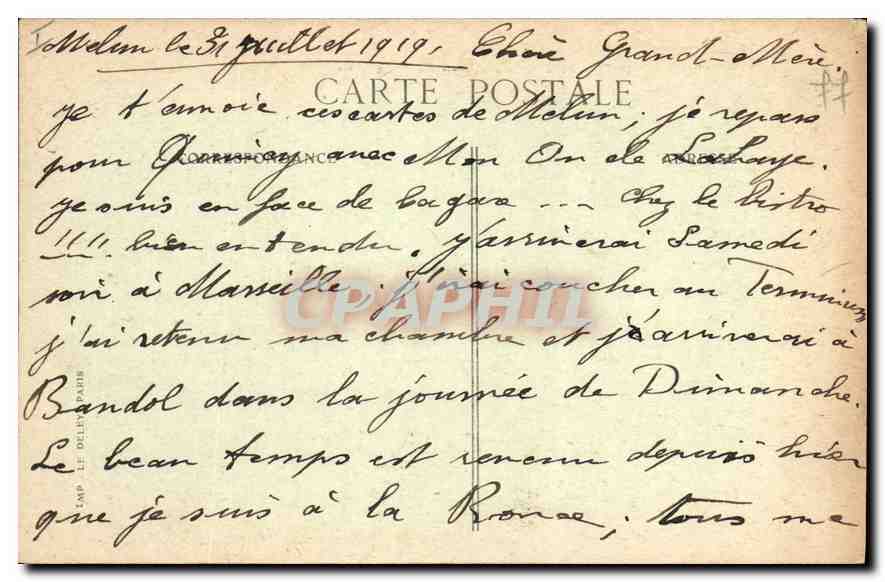 Melun le 31 juillet 1919. Chère Grand-Mère.
CARTE POSTALE
je t'envoie ces cartes de Melun; je repars
pour Quincy avec Mon On de Lahaye.
CORRESPONDANCE
ADRESSE
je suis en face de la gare --- chez le bistro
!!!! bien entendu. j'arriverai Samedi
soir à Marseille. j'irai coucher au Terminus
CPAPHIL
j'ai retenu ma chambre et j'arriverai à
Bandol dans la journée de Dimanche.
Le beau temps est revenu depuis hier
que je suis à la Ronce; tous me
IMP. LE DELEY, PARIS